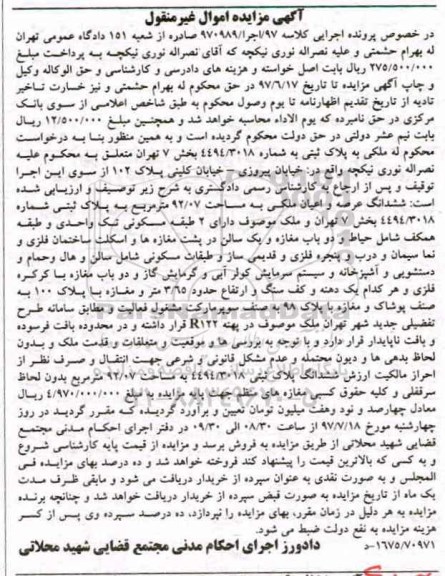 آگهی مزایده اموال غیرمنقول
در خصوص پرونده اجرایی کلاسه ۹۷/اجرا/۹۷۰۹۸۹ صادره از شعبه ۱۵۱ دادگاه عمومی تهران
له بهرام حشمتی و علیه نصراله نوری نیکچه که آقای نصراله نوری نیکچه به پرداخت مبلغ
۲۷۵/۵۰۰/۰۰۰ ریال بابت اصل خواسته و هزینه های دادرسی و کارشناسی و حق الوکاله وکیل
و چاپ آگهی مزایده تا تاریخ ۹۷/۶/۱۷ در حق محکوم له بهرام حشمتی و نیز خسارت تاخیر
تادیه از تاریخ تقدیم اظهارنامه تا یوم وصول محکوم به طبق شاخص اعلامی از سوی بانک
مرکزی در حق نامبرده که یوم الاداء محاسبه خواهد شد و همچنین مبلغ ۱۲/۵۰۰/۰۰۰ ریال
بابت نیم عشر دولتی در حق دولت محکوم گردیده است و به همین منظور بنا به درخواست
محکوم له ملکی به پلاک ثبتی به شماره ۴۴۹۴/۳۰۱۸ بخش ۷ تهران متعلق به محکوم علیه
نصراله نوری نیکچه واقع در: خیابان پیروزی - خیابان کلینی پلاک ۱۰۲ از سوی این اجرا
توقیف و پس از ارجاع به کارشناس رسمی دادگستری به شرح زیر توصیف و ارزیابی شده
است: ششدانگ عرصه و اعیان ملکی به مساحت ۹۲/۰۷ مترمربع به پلاک ثبتی شماره
۴۴۹۴/۳۰۱۸ بخش ۷ تهران و ملک موصوف دارای ۲ طبقه مسکونی تک واحدی و طبقه
همکف شامل حیاط و دو باب مغازه و یک سالن در پشت مغازه ها و اسکلت ساختمان فلزی و
نما سیمان و درب و پنجره فلزی و قدیمی ساز و طبقات مسکونی شامل سالن و هال وحمام و
دستشویی و آشپزخانه و سیستم سرمایش کولر آبی و گرمایش گاز و دو باب مغازه با کرکره
فلزی و هر کدام یک دهنه و کف سنگ و ارتفاع حدود ۳/۶۵ متر و مغازه با پلاک ۱۰۰ به
صنف پوشاک و مغازه با پلاک ۹۸ به صنف سوپرمارکت مشغول فعالیت و مطابق سامانه طرح
تفضیلی جدید شهر تهران ملک موصوف در پهنه R۱۲۲ قرار داشته و در محدوده بافت فرسوده
و بافت ناپایدار قرار دارد و با توجه به بررسی ها و موقعیت و متعلقات و قدمت ملک و بدون
لحاظ بدهی ها و دیون محتمله و عدم مشکل قانونی و شرعی جهت انتقال و صرف نظر از
احراز مالکیت ارزش ششدانگ پلاک ثبتی ۴۴۹۴/۳۰۱۸ به مساحت ۹۲/۰۷ مترمربع بدون لحاظ
سرقفلی و کلیه حقوق کسبی مغازه های همکف جهت امر مزایده به مبلغ ۴/۹۷۰/۰۰۰/۰۰۰ ریال
معادل چهارصد و نود وهفت میلیون تومان تعیین و برآورد گردیده که مقرر گردید در روز
چهارشنبه مورخ ۹۷/۷/۱۸ از ساعت ۰۸/۳۰ الی ۰۹/۳۰ در دفتر اجرای احکام مدنی مجتمع
قضایی شهید محلاتی از طریق مزایده به فروش برسد و مزایده از قیمت پایه کارشناسی شروع
و به کسی که بالاترین قیمت را پیشنهاد کند فروخته خواهد شد و ده درصد بهای مزایده فی
المجلس و به صورت نقدی به عنوان سپرده از خریدار دریافت می شود و مابقی ظرف مدت
یک ماه از تاریخ مزایده به صورت قبض سپرده از خریدار دریافت خواهد شد و چنانچه برنده
مزایده به هر دلیل در زمان مقرر، بهای مزایده را نپردازد، ده درصد سپرده وی پس از کسر
هزینه مزایده به نفع دولت ضبط می شود.
۱۶۷۵/۷۰۹۷۱-د دادورز اجرای احکام مدنی مجتمع قضایی شهید محلاتی